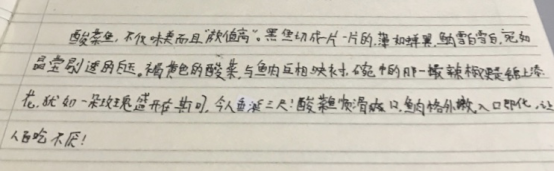 酸菜鱼，不仅味美而且“颜值高”。黑鱼切成一片一片的，薄如蝉翼，鱼肉雪白雪白，宛如
晶莹剔透的白玉。褐黄色的酸菜与鱼肉互相映衬，碗中的那一撮辣椒更是锦上添
花，犹如一朵玫瑰盛开在其间，令人垂涎三尺！酸菜鱼嫩滑爽口，鱼肉格外嫩，入口即化，让
人百吃不厌！